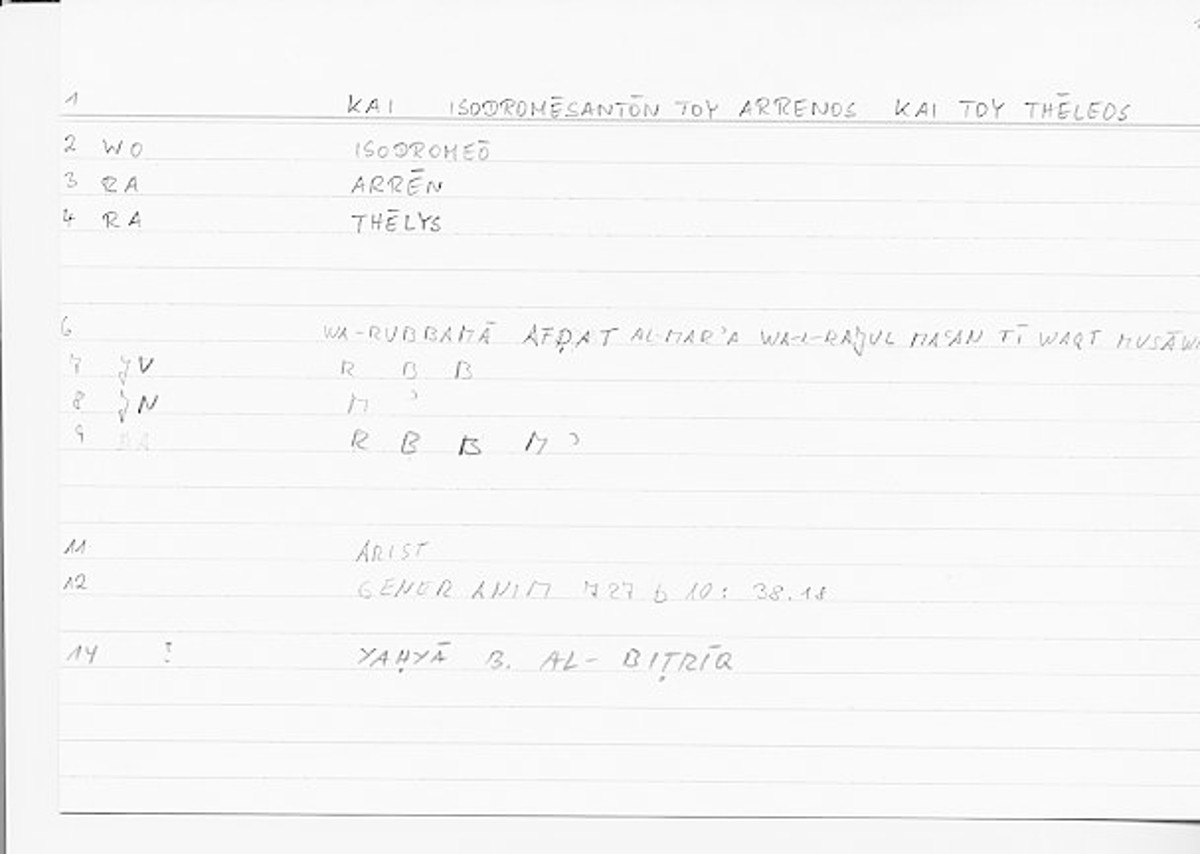 1 KAI ISODROMĒSANTŌN TOY ARRENOS KAI TOY THĒLEOS
2 WO ISODROMEŌ
3 RA ARRĒN
4 RA THĒLYS
6 WA-RUBBAMĀ AFḌAT AL-MARʾA WA-L-RAǦUL MAʿAN FĪ WAQT
7 V R B B
8 N M ʾ
9 R B B M ʾ
11 ARIST
12 GENER ANIM 727 b 10: 38.18
14 ! YAḤYĀ B. AL-BIṬRĪQ